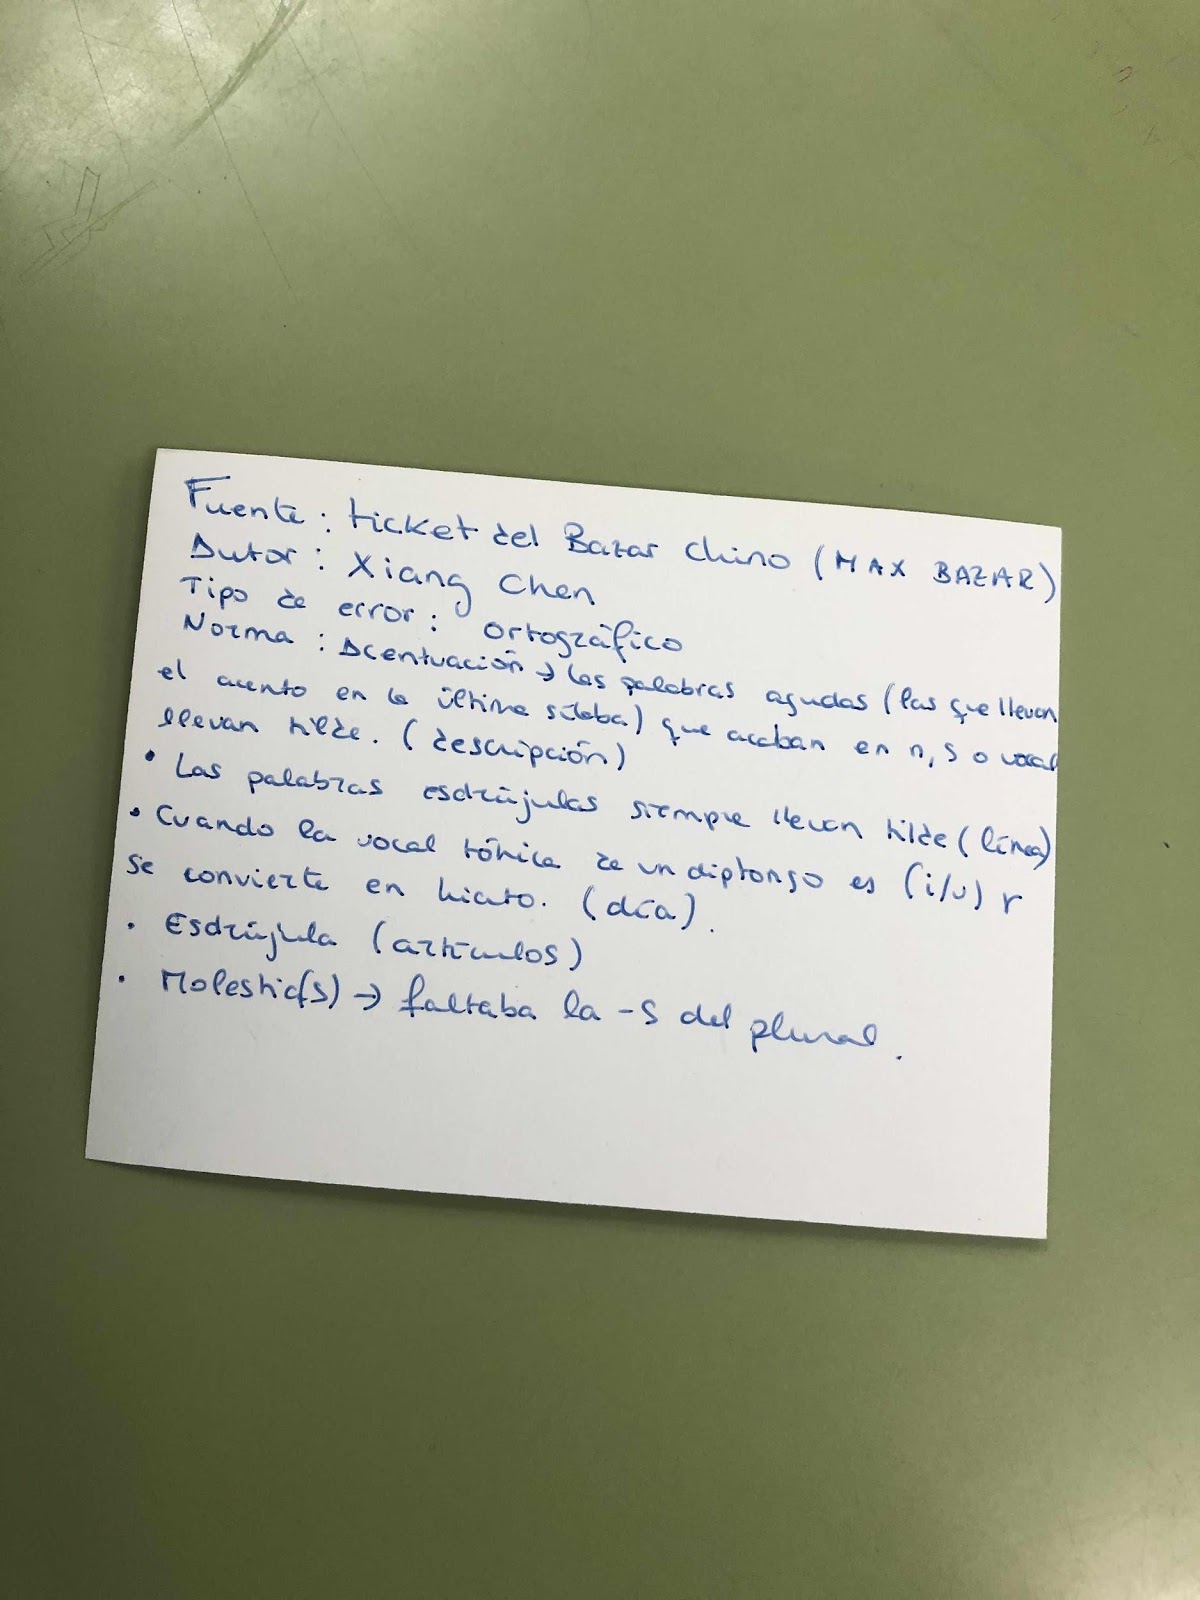 Fuente: ticket del Bazar Chino (MAX BAZAR)
Autor: Xiang Chen
Tipo de error: ortográfico
Norma: Acentuación → las palabras agudas (las que llevan
el acento en la última sílaba) que acaban en n, s o vocal
llevan tilde. (descripción)
• Las palabras esdrújulas siempre llevan tilde (línea)
• Cuando la vocal tónica de un diptongo es (i/u) r
se convierte en hiato. (día).
• Esdrújula (artículos)
• Molestia(s) → faltaba la -s del plural.